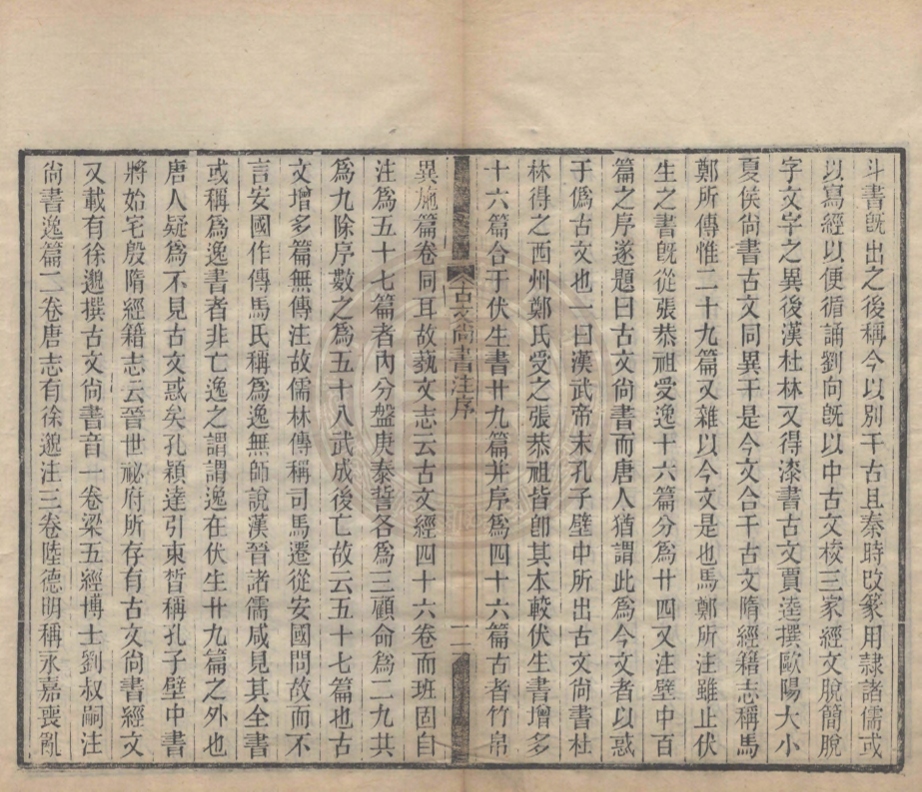 斗書旣出之後稱今以別于古且秦時改篆用隷諸儒或
以寫經以便循誦劉向旣以中古文校三家經文脫簡脫
字文字之異後漢杜林又得漆書古文賈逵撰歐陽大小
夏侯尚書古文同異于是今文合于古文隋經籍志稱馬
鄭所傳惟二十九篇又雜以今文是也馬鄭所注雖止伏
生之書旣從張恭祖受逸十六篇分爲廿四又注壁中百
篇之序遂題曰古文尚書而唐人猶謂此爲今文者以惑
于僞古文也一曰漢武帝末孔子壁中所出古文尚書杜
林得之西州鄭氏受之張恭祖皆卽其本較伏生書增多
十六篇合于伏生書廿九篇幷序爲四十六篇古者竹帛
古文尚書注序
二
異施篇卷同耳故蓺文志云古文經四十六卷而班固自
注爲五十七篇者內分盤庚泰誓各爲三顧命爲二九共
爲九除序數之爲五十八武成後亡故云五十七篇也古
文增多篇無傳注故儒林傳稱司馬遷從安國問故而不
言安國作傳馬氏稱爲逸無師說漢晉諸儒咸見其全書
或稱爲逸書者非亡逸之謂謂逸在伏生廿九篇之外也
唐人疑爲不見古文惑矣孔穎達引束晳稱孔子壁中書
將始宅殷隋經籍志云晉世祕府所存有古文尚書經文
又載有徐邈撰古文尚書音一卷梁五經博士劉叔嗣注
尚書逸篇二卷唐志有徐邈注三卷陸德明稱永嘉喪亂